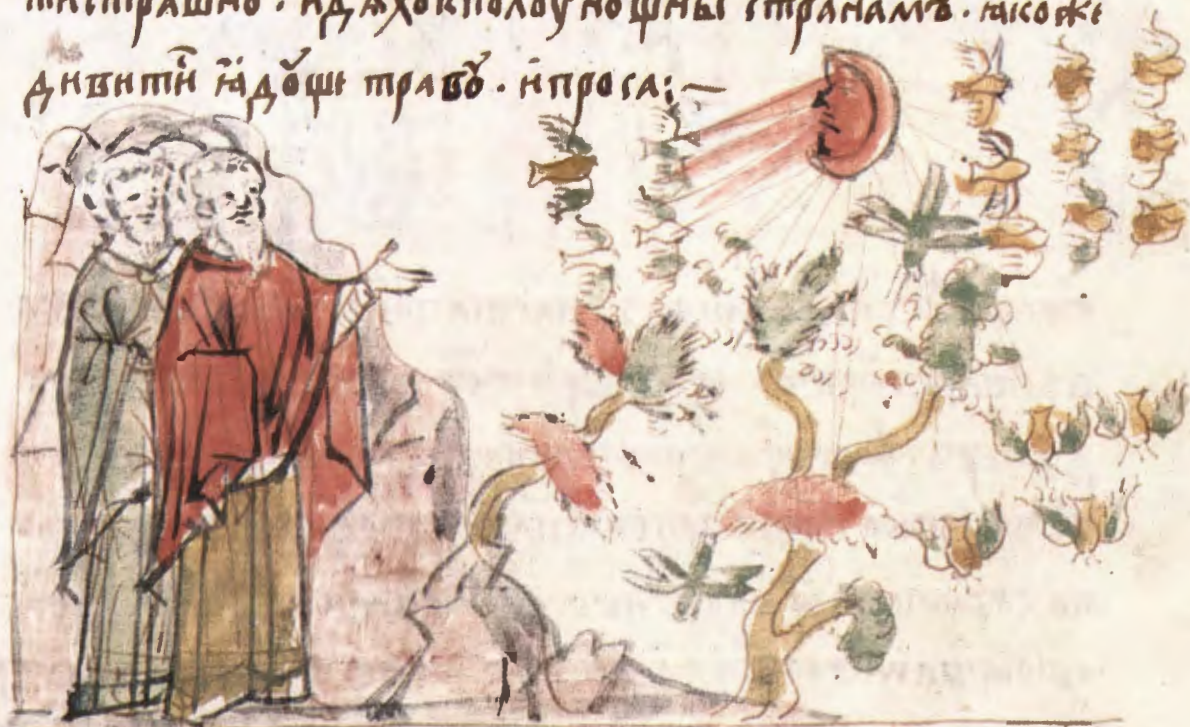 ти страшно · идѧхꙋ к полоунощны странамъ · ꙗкоже
дивити ꙗдꙋще травꙋ · и проса:—